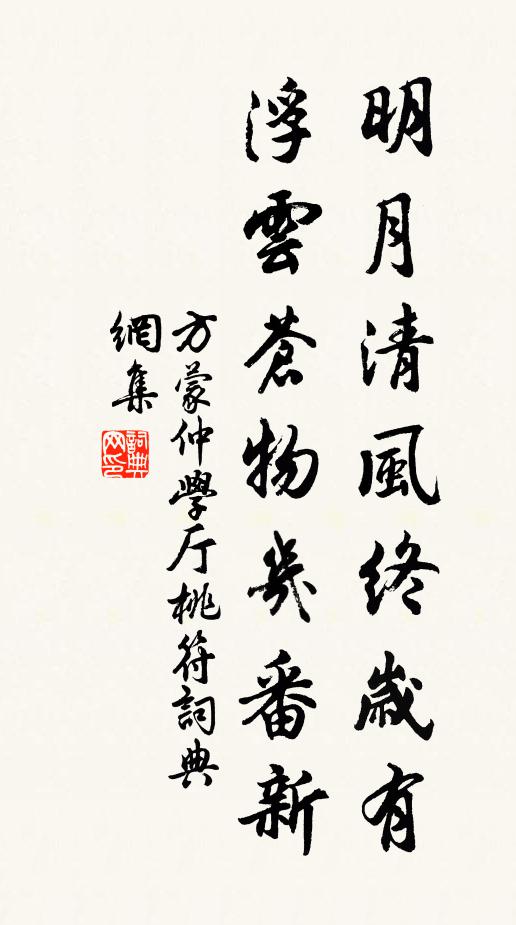 明月清風終歲有
浮雲蒼物幾番新
方蒙仲學厅桃符詞典
網集
詞典
网印